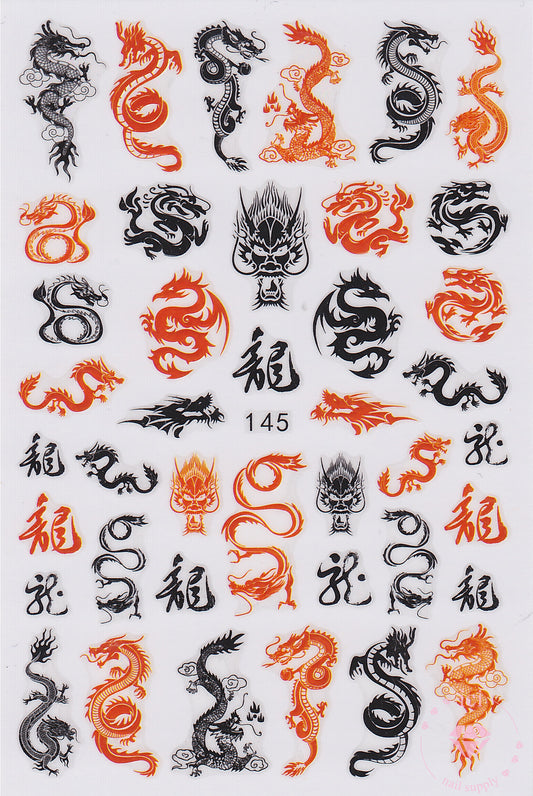 龍
145
龍 龍
龍 龍
龍 龍 龍 龍
nail supply